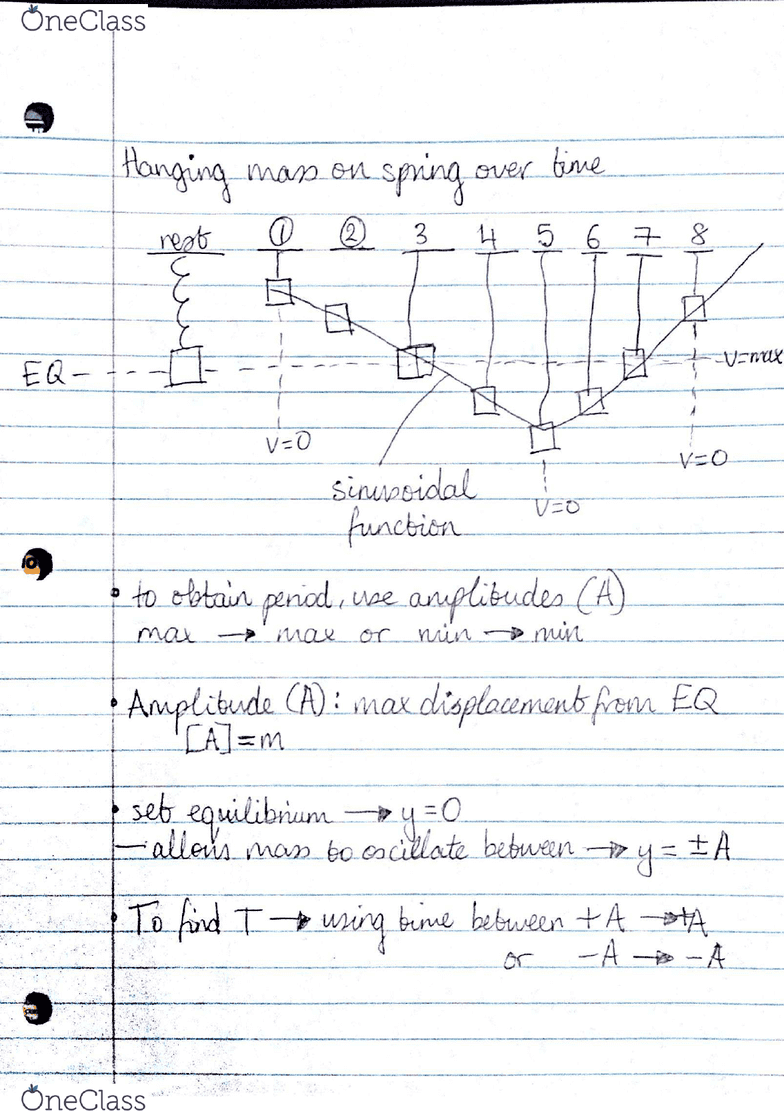 OneClass
Hanging mass on spring over time
rest 1 2 3 4 5 6 7 8
EQ
V=max
V=0
V=0
V=0
sinusoidal
function
• to obtain period, use amplitudes (A)
max → max or min → min
• Amplitude (A): max displacement from EQ
[A]=m
• set equilibrium → y=0
— allows mass to oscillate between → y = ±A
• To find T → using time between +A → +A
or -A → -A
OneClass